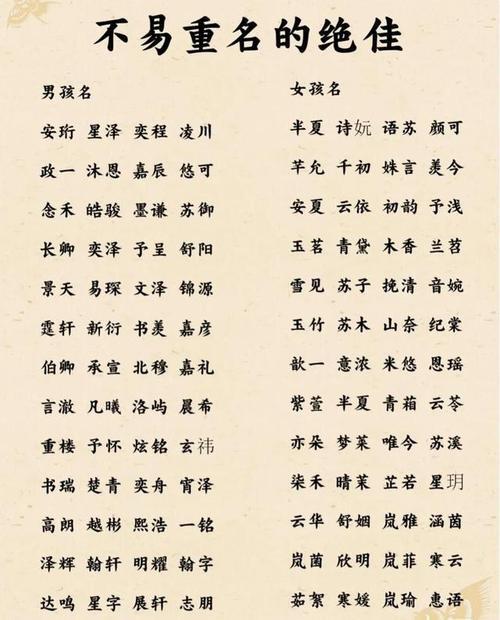 不易重名的绝佳
男孩名
安珩 星泽 奕程 凌川
政一 沐恩 嘉辰 悠可
念禾 皓骏 墨谦 苏御
长卿 奕泽 予呈 舒阳
景天 易琛 文泽 锦源
霆轩 新衍 书羡 嘉彦
伯卿 承宣 北穆 嘉礼
言澈 凡曦 洛屿 晨希
重楼 予怀 炫铭 玄祎
书瑞 楚青 奕舟 宵泽
高朗 越彬 熙浩 一铭
泽辉 翰轩 明耀 翰字
达鸣 星字 展轩 志朋
女孩名
半夏 诗妧 语苏 颜可
芊允 千初 姝言 羡今
安夏 云依 初韵 予浅
玉茗 青黛 木香 兰苕
雪见 苏子 挽清 音婉
玉竹 苏木 山奈 纪棠
歆一 意浓 米悠 恩瑶
紫萱 半夏 青葙 云苓
亦朵 梦莱 唯今 苏溪
柒禾 晴茉 芷若 星玥
云华 舒姻 岚雅 涵茵
岚茵 欣明 岚菲 寒云
茹絮 寒媛 岚瑜 惠语